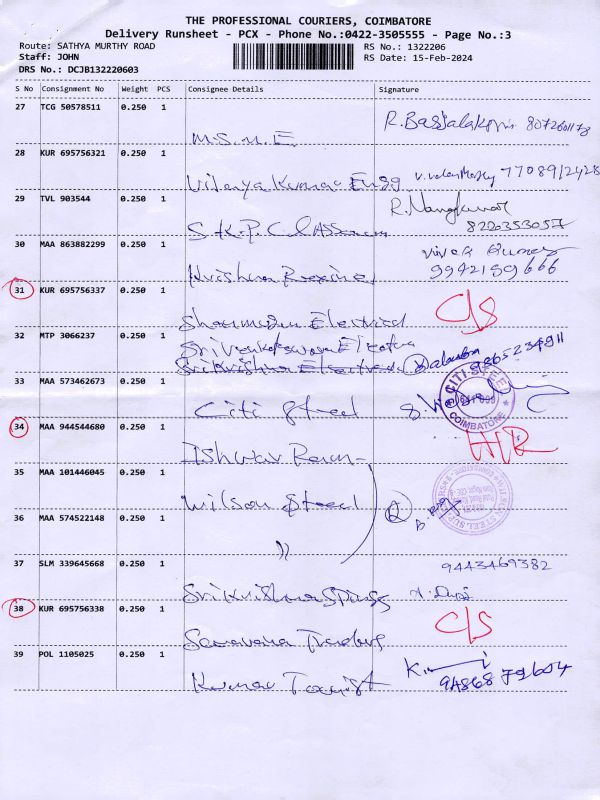 THE PROFESSIONAL COURIERS, COIMBATORE
Delivery Runsheet - PCX - Phone No.:0422-3505555 - Page No.:3
Route: SATHYA MURTHY ROAD RS No.: 1322206
Staff: JOHN RS Date: 15-Feb-2024
DRS No.: DCJB132220603
S No Consignment No Weight PCS Consignee Details Signature
27 TCG 50578511 0.250 1 M.S.M.E
28 KUR 695756321 0.250 1 Vijaya Kumar Engg 7708912428
29 TVL 903544 0.250 1 8220353057
30 MAA 863882299 0.250 1 Krishna 9942159666
31 KUR 695756337 0.250 1 Electrical C/S
32 MTP 3066237 0.250 1 Sri Venkateswara Electra
Sri Krishna 9865234911
33 MAA 573462673 0.250 1 Citi Steel CITI STEEL COIMBATORE
34 MAA 944544680 0.250 1 Ishwar
35 MAA 101446045 0.250 1 Wilson Steel
36 MAA 574522148 0.250 1 "
37 SLM 339645668 0.250 1 Sri Krishna 9443469382
38 KUR 695756338 0.250 1 Saravana Traders C/S
39 POL 1105025 0.250 1 Kumar Tourist